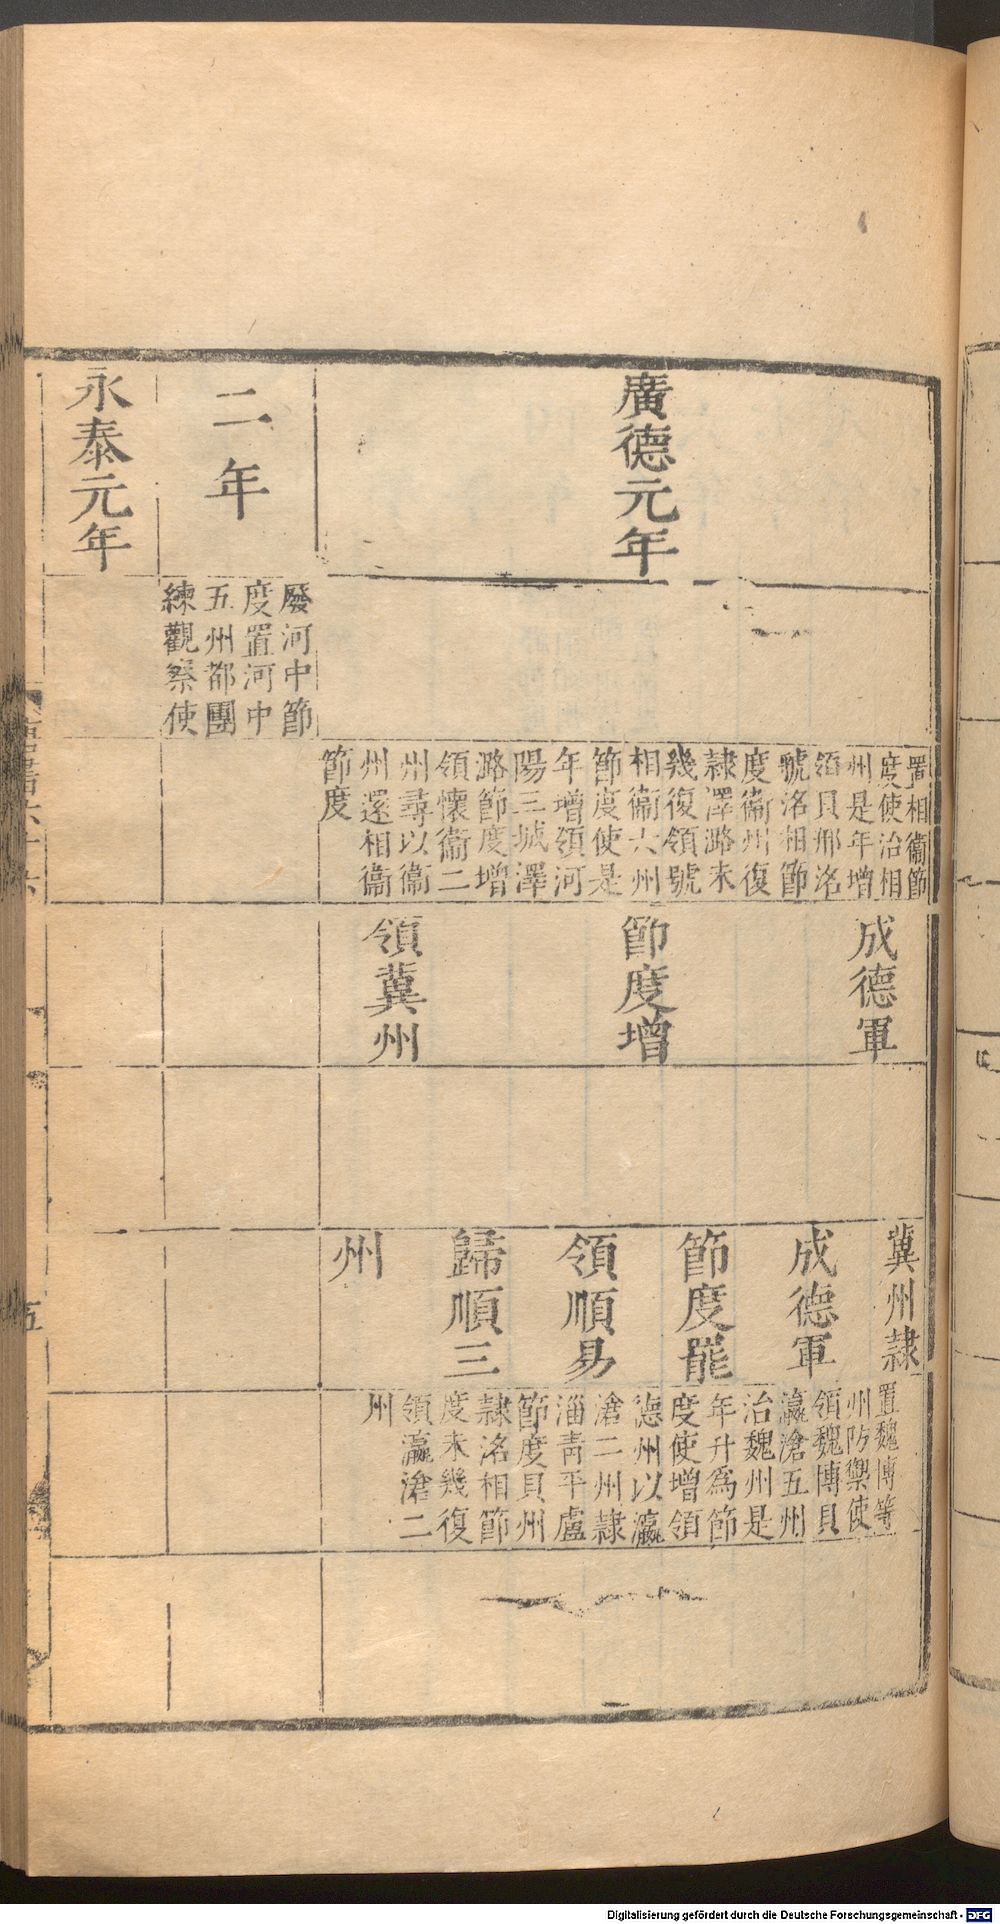 廣德元年
置相衞節
度使治相
州是年增
領貝邢洺
號洺相節
度衞州復
隸澤潞未
幾復領號
相衞六州
節度使是
年增領河
陽三城澤
潞節度增
領懷衞二
州尋以衞
州還相衞
節度
成德軍
節度增
領冀州
冀州隸
成德軍
節度罷
領順易
歸順三
州
置魏博等
州防禦使
領魏博貝
瀛滄五州
治魏州是
年升爲節
度使增領
德州以瀛
滄二州隸
淄青平盧
節度貝州
隸洺相節
度未幾復
領瀛滄二
州
二年
廢河中節
度置河中
五州都團
練觀察使
永泰元年
五
Digitalisierung gefördert durch die Deutsche Forschungsgemeinschaft - DFG